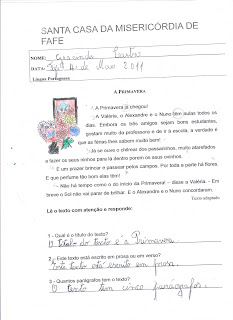 SANTA CASA DA MISERICÓRDIA DE
FAFE
NOME:
DATA: de Maio 2011
Língua Portuguesa
A PRIMAVERA
A Primavera já chegou!
A Valéria, o Alexandre e o Nuno têm aulas todos os
dias. Embora os três amigos sejam bons estudantes,
gostam muito da professora e de ir à escola, a verdade é
que as férias lhes sabem muito bem!
Já se ouve o chilrear dos passarinhos, muito atarefados
a fazer os seus ninhos para lá dentro porem os seus ovinhos.
É um prazer brincar e passear pelos campos. Por toda a parte há flores.
E que perfume tão bom elas têm!
- Não há tempo como o do início da Primavera! – disse a Valéria. – Em
breve o Sol não vai parar de brilhar. E o Alexandre e o Nuno concordaram.
Texto adaptado
Lê o texto com atenção e responde:
1 - Qual é o título do texto?
O título do texto é a Primavera
2 - Este texto está escrito em prosa ou em verso?
Este texto está escrito em prosa.
3 - Quantos parágrafos tem o texto?
O texto tem cinco parágrafos.